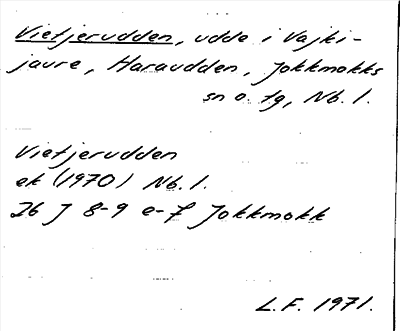 Vietjerudden, udde i Vajki-
jaure, Haraudden, Jokkmokks
sn o. tg, Nb. l.
Vietjerudden
ek (1970) Nb. l.
26 J 8-9 e-f Jokkmokk
L.F. 1971.